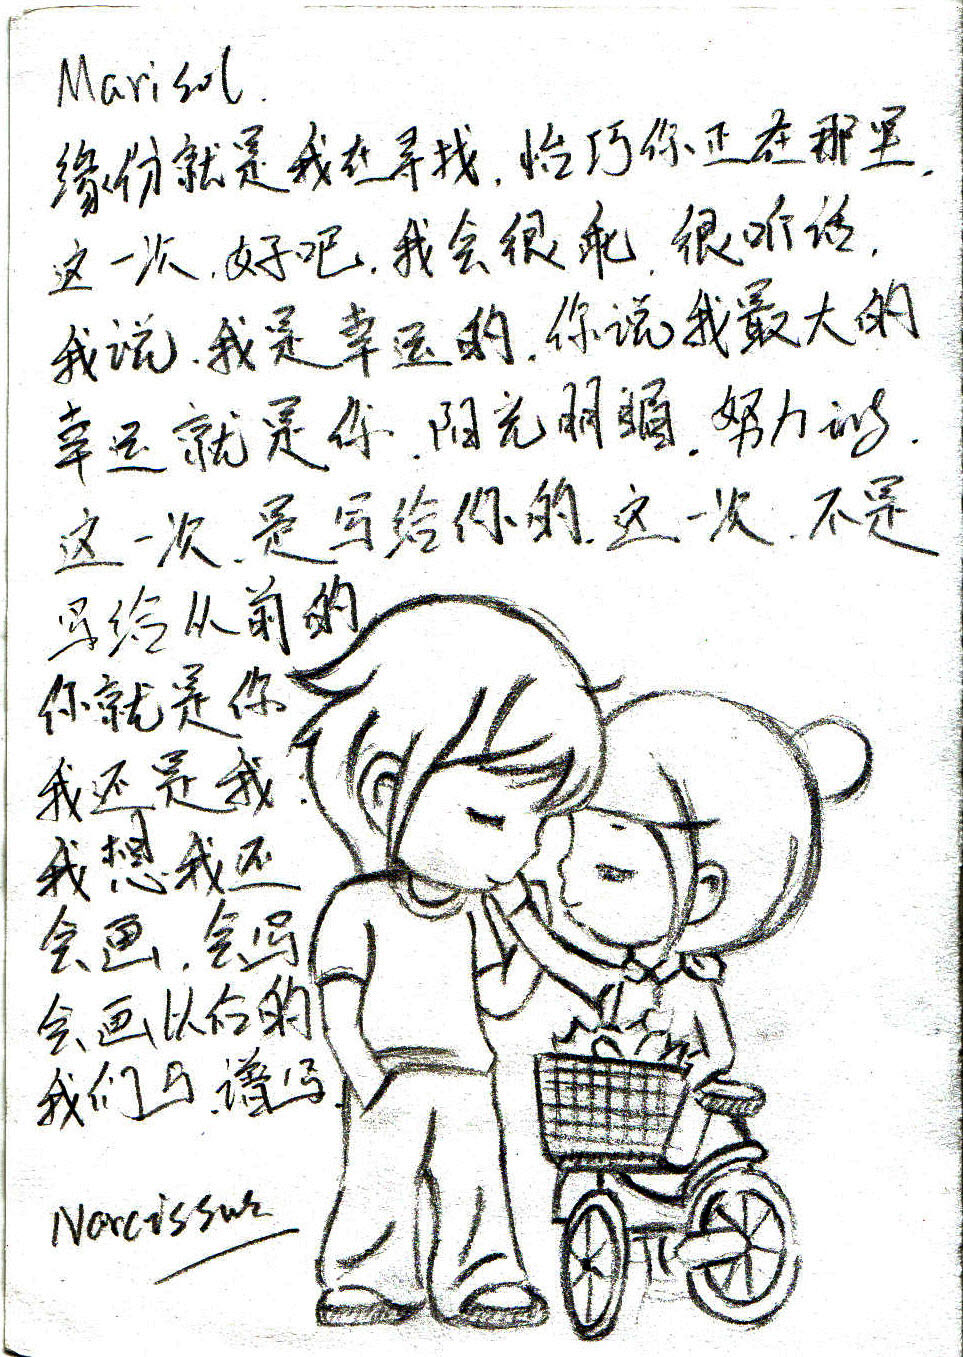 Marisol.
缘份就是我在寻找，恰巧你正在那里，
这一次，好吧，我会很乖，很听话，
我说，我是幸运的，你说我最大的
幸运就是你，阳光明媚，努力
这一次，是写给你的，这一次，不是
写给从前的
你就是你
我还是我，
我想我还
会画，会写
会画以后的
我们 谱写，
Narcissus